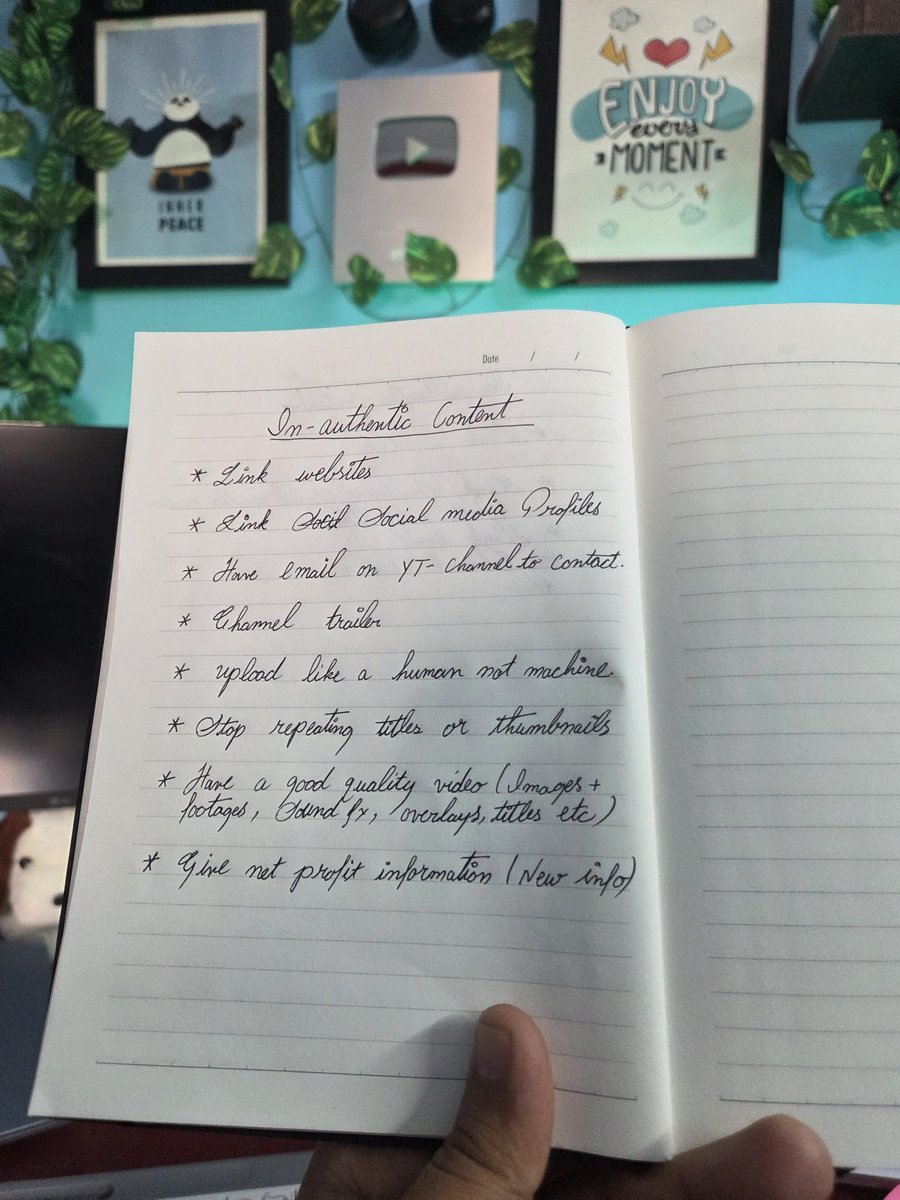 INNER
PEACE
ENJOY
every
MOMENT
Date / /
In-authentic Content
* Link websites
* Link Socil Social media Profiles
* Have email on YT- Channel to contact.
* Channel trailer
* upload like a human not machine
* Stop repeating titles or thumbnails
* Have a good quality video (Images +
footages, Sound fx, overlays, titles etc)
* Give net profit information (New info)